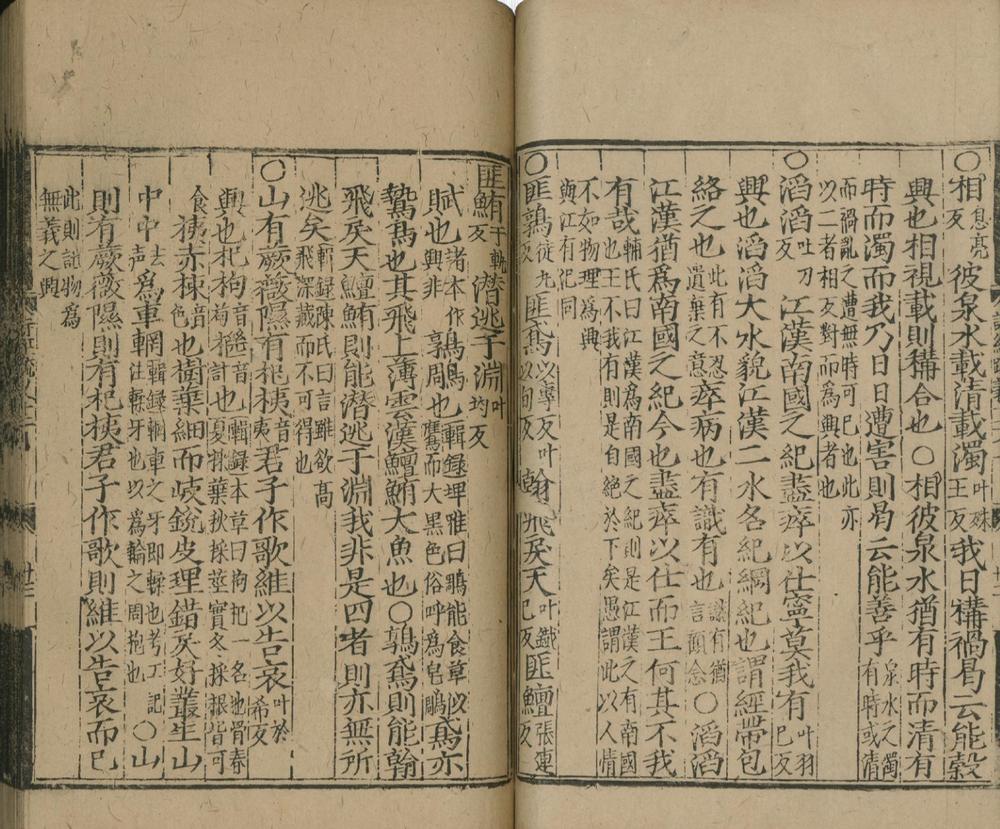 ○相息亮反彼泉水載清載濁叶殊王反我日構禍曷云能穀
興也相視載則構合也○相彼泉水猶有時而清有
時而濁而我乃日日遭害則曷云能善乎泉水之濁有時或清
而禍亂之遭無時可已也此亦以二者相反對而爲興者也
○滔滔吐刀反江漢南國之紀盡瘁以仕寧莫我有叶羽已反
興也滔滔大水貌江漢二水名紀綱紀也謂經帶包
絡之也此有不忍遺棄之意瘁病也有識有也識有猶言顧念○滔滔
江漢猶爲南國之紀今也盡瘁以仕而王何其不我
有哉輔氏曰江漢爲南國之紀則是江漢之有南國也王不我有則是自絶於下矣愚謂此以人情
不如物理爲興與江有汜同
○匪鶉徒丸反匪鳶以專反叶以旬反翰飛戾天叶鐵因反匪鱣張連反
匪鮪于軌反潛逃于淵叶均反
賦也諸本作興非鶉鵰也輯録埤雅曰鵰能食草似鷹而大黑色俗呼爲皂鵰鳶亦
鷙鳥也其飛上薄雲漢鱣鮪大魚也○鶉鳶則能翰
飛戾天鱣鮪則能潛逃于淵我非是四者則亦無所
逃矣輯録陳氏曰言雖欲高飛深藏而不可得也
○山有蕨薇隰有杞桋音夷君子作歌維以告哀叶於希反
興也杞枸音苟檵音計也輯録本草曰枸杞一名地骨春夏採葉秋採莖實冬採根皆可
食桋赤楝音色也樹葉細而岐銳皮理錯戾好叢生山
中中去声爲車輞輯録輞車之牙即輮也考工記注輮牙也以爲輪之周抱也○山
則有蕨薇隰則有杞桋君子作歌則維以告哀而已
此則託物爲無義之興